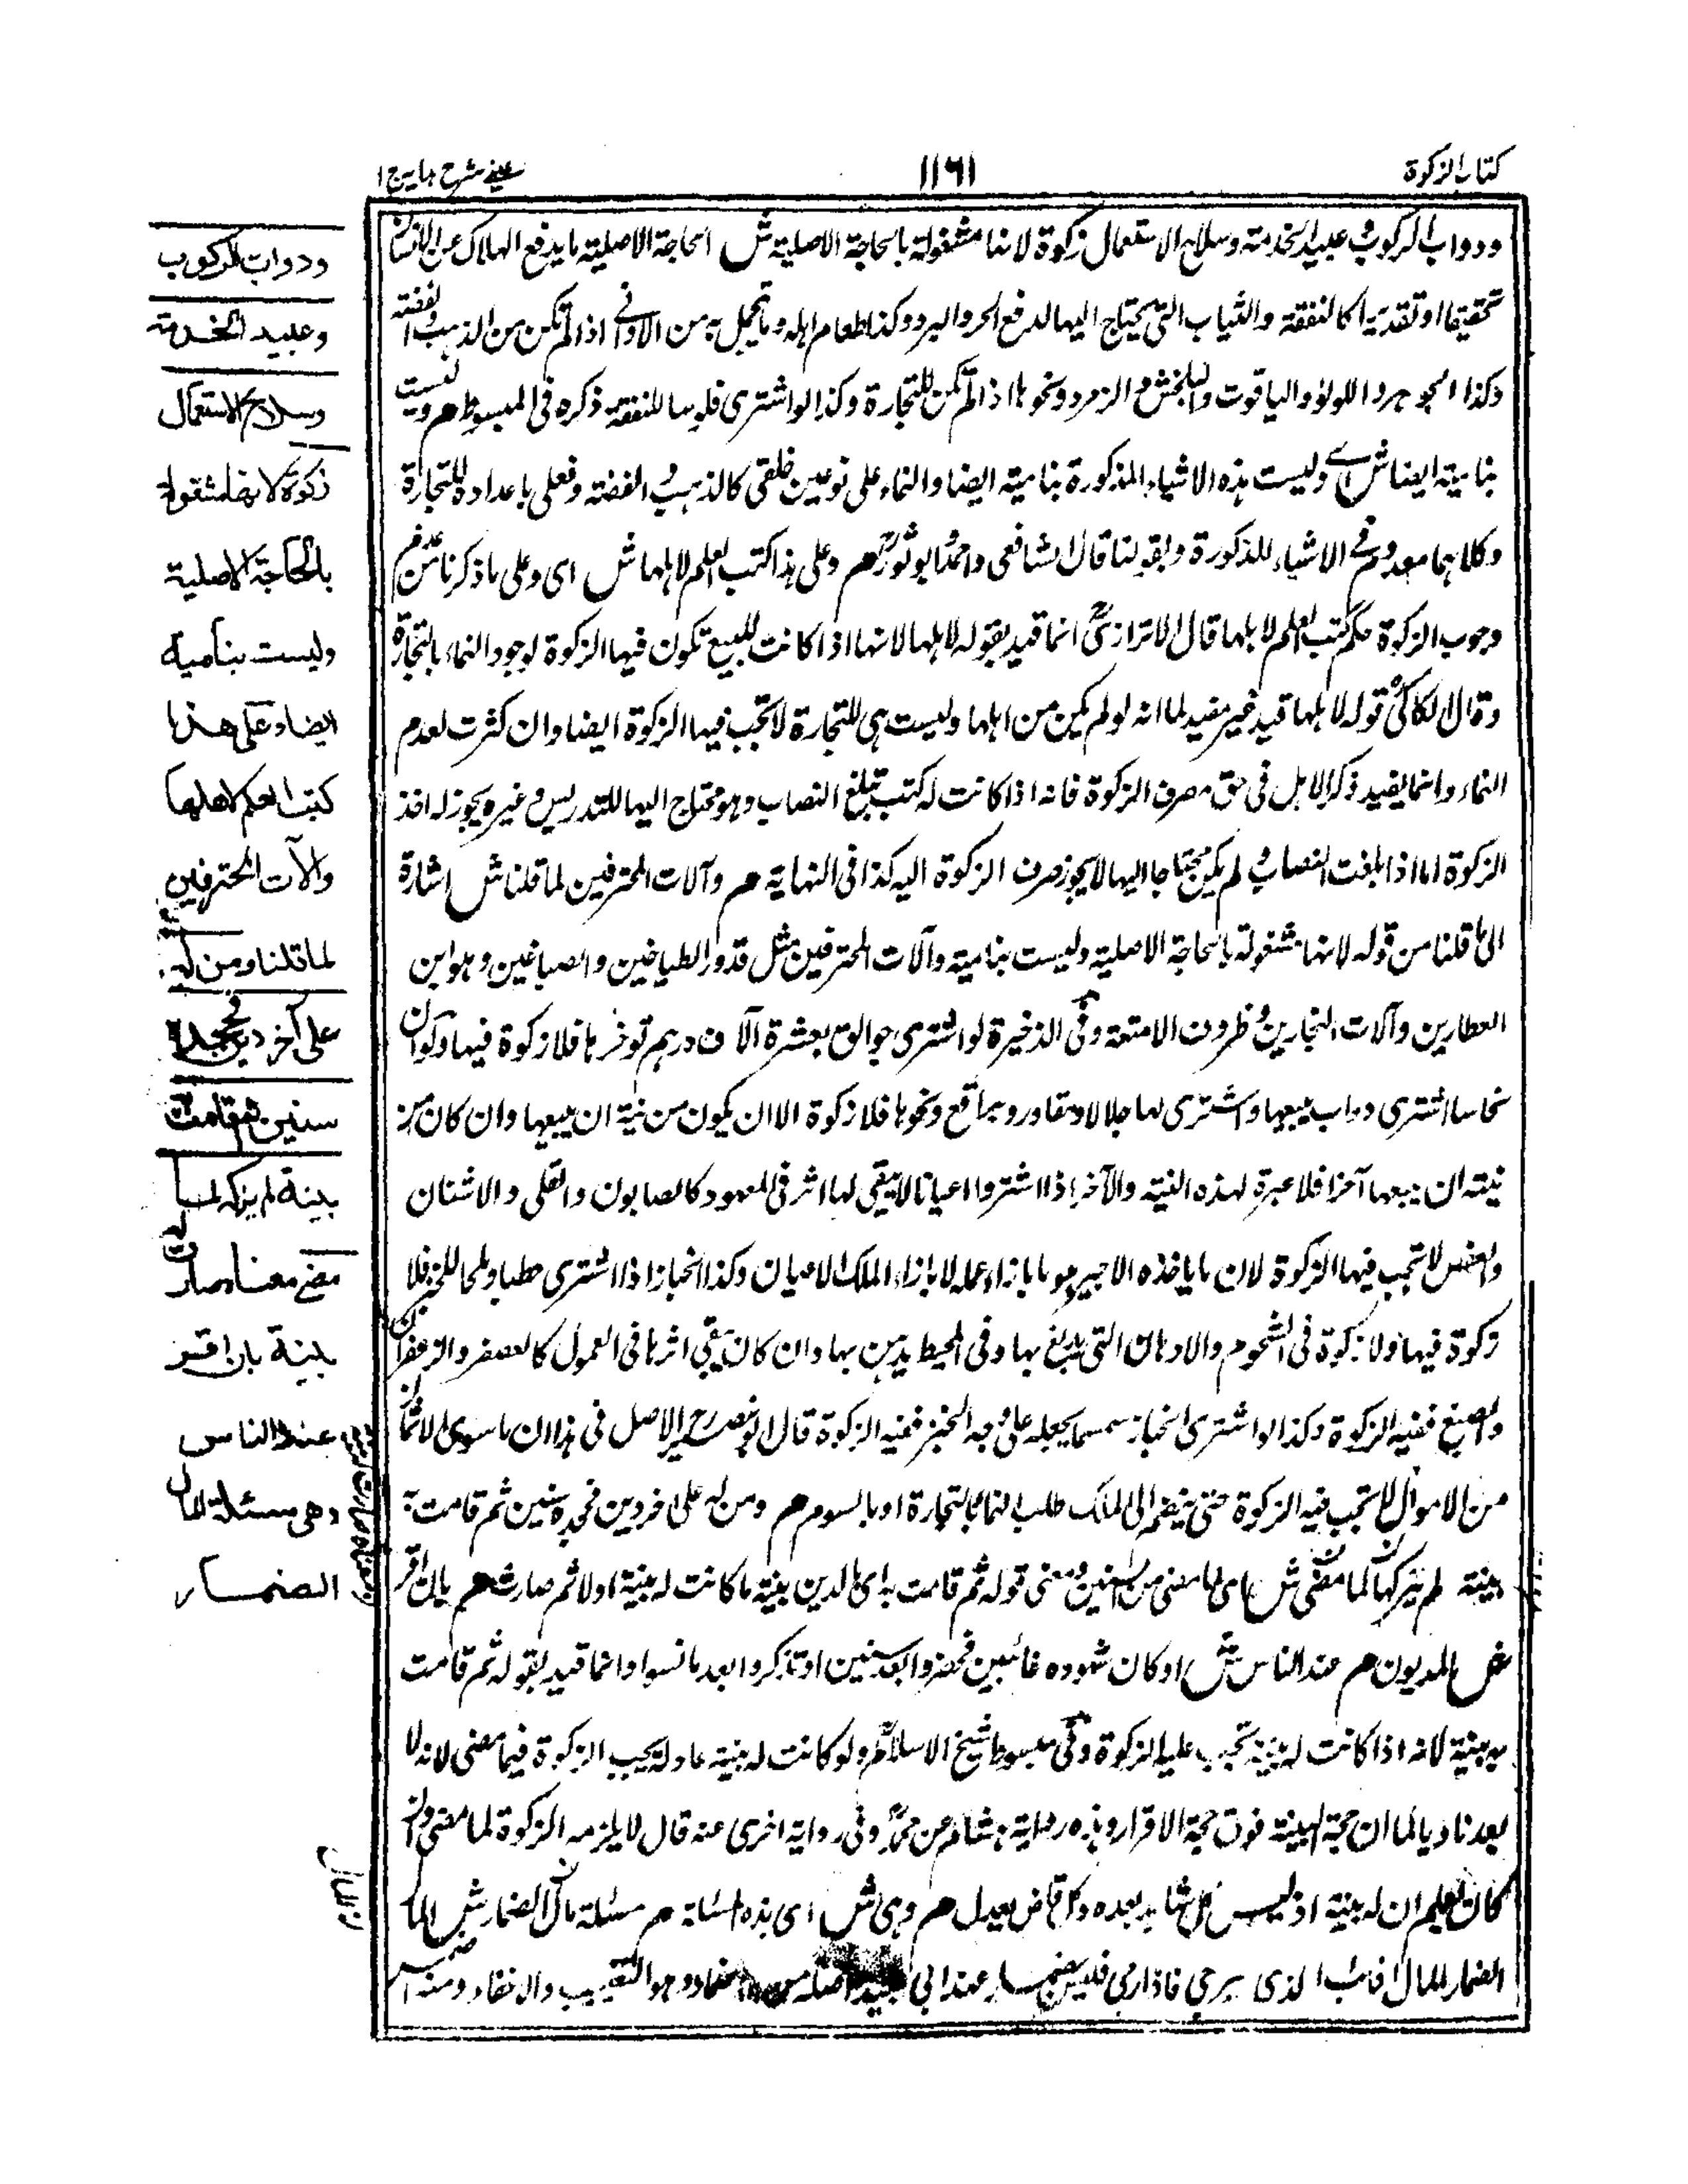 كتاب الزكوة
١١٦١
عينے شرح ہدايہ ج ١
ودواب الركوب وعبيد الخدمة وسلاح الاستعمال زكوة لانها مشغولة بالحاجة الاصلية ش الحاجة الاصلية ما يدفع الهلاك عن الانسان
تحقيقا او تقديرا كالنفقة والثياب التى يحتاج اليها لدفع الحر والبرد وكذا طعام اهله وما يتجمل به من الاوانى اذا لم تكن من الذهب والفضة
وكذا الجوهر واللولؤ والياقوت والبلخش والزمرد ونحوها اذا لم تكن للتجارة وكذا لو اشترى فلوسا للنفقة ذكره فى المبسوط هم وليست
بنامية ايضا ش اے وليست هذه الاشياء المذكورة بنامية ايضا والنماء على نوعين خلقى كالذهب والفضة وفعلى باعداده للتجارة
وكلاهما معدوم فى الاشياء المذكورة وبقولنا قال الشافعى واحمد وابو ثور هم وعلى هذا كتب العلم لاهلها ش اى وعلى ما ذكرنا من عدم
وجوب الزكوة حكم كتب العلم لاهلها قال الاترازى انما قيد بقوله لاهلها لانها اذا كانت للبيع تكون فيها الزكوة لوجود النماء بالتجارة
وقال الكاكى قوله لاهلها قيد غير مفيد لما انه لو لم يكن من اهلها وليست هى للتجارة لا تجب فيها الزكوة ايضا وان كثرت لعدم
النماء وانما يفيد ذكر الاهل فى حق مصرف الزكوة فانه اذا كانت له كتب تبلغ النصاب وهو محتاج اليها للتدريس وغيره يجوز له اخذ
الزكوة اما اذا بلغت النصاب ولم يكن محتاجا اليها لا يجوز صرف الزكوة اليه كذا فى النهاية هم وآلات المحترفين لما قلنا ش اشارة
الى ما قلنا من قوله لانها مشغولة بالحاجة الاصلية وليست بنامية وآلات المحترفين مثل قدور الطباخين والصباغين وهواين
العطارين وآلات النجارين وظروف الامتعة وفى الذخيرة لو اشترى جوالق بعشرة آلاف درهم توخرها فلا زكوة فيها ولو ان
نخاسا اشترى دواب يبيعها واشترى لها جلالا ومقاود وبراقع ونحوها فلا زكوة الا ان يكون من نية ان يبيعها وان كان من
نيته ان يبيعها آخرا فلا عبرة لهذه النية والآخر اذا اشتروا اعيانا لا يبقى لها اثر فى المعمول كالصابون والقلى والاشنان
والعفص لا تجب فيها الزكوة لان ما ياخذه الاجير هو ما بازاء عمله لا بازاء الملك الاعيان وكذا الخباز اذا اشترى حطبا وملحا للخبز فلا
زكوة فيها ولا زكوة فى الشحوم والادهان التى يدبغ بها وفى المحيط يدهن بها وان كان يبقى اثرها فى المعمول كالعصفر والزعفران
والصبغ ففيه الزكوة وكذا لو اشترى الخباز سمسما يجعله على وجه الخبز ففيه الزكوة قال ابو نصر رح الاصل فى هذا ان ما سوى الاثمان
من الاموال لا تجب فيه الزكوة حتى ينضم الى الملك طلب النماء بالتجارة او بالسوم هم ومن له على اخر دين فجحده سنين ثم قامت به
بينة لم يزكها لما مضى ش اى لما مضى من السنين ومعنى قوله ثم قامت به اى بالدين بينة ما كانت له بينة اولا ثم صارت هم بان اقر
ش المديون هم عند الناس ش او كان شهوده غائبين فحضروا بعد سنين او تذكروا بعد ما نسوا وانما قيد بقوله ثم قامت
به بينة لانه اذا كانت له بينة تجب عليه الزكوة وفى مبسوط شيخ الاسلام ولو كانت له بينة عادلة يجب الزكوة فيما مضى لانه لا
يعد ناويا لما ان حجة البينة فوق حجة الاقرار وهذه رواية هشام عن محمد وفى رواية اخرى عنه قال لا يلزمه الزكوة لما مضى وان
كان يعلم ان له بينة اذ ليس كل شاهد يعدل وكل قاض يعدل هم وهى ش اى هذه المسئلة هم مسئلة مال الضمار ش المال
الضمار المال الغائب الذى يرجى فاذا لم يرج فليس بضمار عند ابى عبيد واصله من الاضمار وهو التغييب والاخفاء ومنه
ودواب الركوب
وعبيد الخدمة
وسلاح الاستعمال
زكوة لانها مشغولة
بالحاجة الاصلية
وليست بنامية
ايضا وعلى هذا
كتب العلم لاهلها
وآلات المحترفين
لما قلنا ومن له
على آخر دين فجحده
سنين ثم قامت به
بينة لم يزكه لما
مضى معناه صارت له
بينة بان اقر
عند الناس
وهى مسئلة المال
الضمار